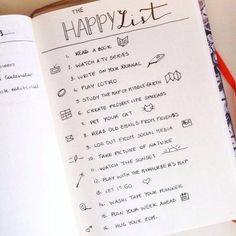 THE
HAPPY List
1. READ A BOOK
2. WATCH A TV SERIES
3. WRITE ON YOUR JOURNAL
4. PLAY LOTRO
5. STUDY THE MAP OF MIDDLE EARTH
6. CREATE PROJECT LIFE SPREADS
7. PET YOUR CAT
8. READ OLD EMAILS FROM FRIENDS
9. LOG OUT FROM SOCIAL MEDIA
10. TAKE PICTURE OF NATURE
11. WATCH THE SUNSET
12. PLAY WITH THE MARAUDER'S MAP
13. LET IT GO
14. WASHI TAPE YOUR PLANNER
15. PLAN YOUR WEEK AHEAD
16. HUG YOUR